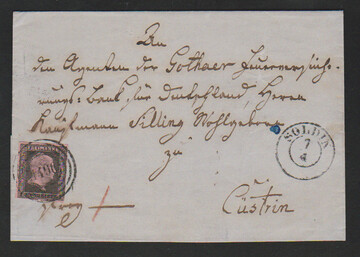 An
den Agenten der Gothaer Feuerversiche-
rungs-Bank, für Deutschland, Herrn
Kaufmann Wohlgeboren
zu
SOLDIN
7
4
Cüstrin